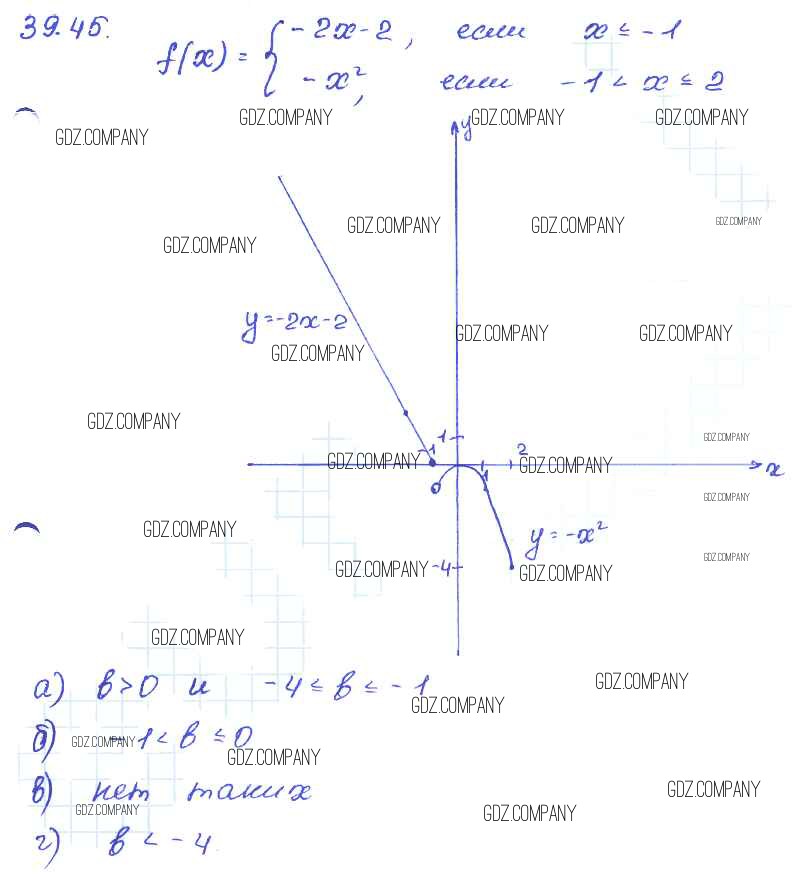 39.45.
f(x) = { -2x-2, если x ≤ -1
-x², если -1 < x ≤ 2
GDZ.COMPANY GDZ.COMPANY GDZ.COMPANY GDZ.COMPANY
y
GDZ.COMPANY GDZ.COMPANY GDZ.COMPANY GDZ.COMPANY
y=-2x-2
GDZ.COMPANY GDZ.COMPANY GDZ.COMPANY
GDZ.COMPANY 1 GDZ.COMPANY
GDZ.COMPANY -1 2 GDZ.COMPANY x
1 GDZ.COMPANY
GDZ.COMPANY y=-x²
GDZ.COMPANY -4 GDZ.COMPANY GDZ.COMPANY
GDZ.COMPANY
а) в>0 и -4 ≤ в ≤ -1 GDZ.COMPANY GDZ.COMPANY
б) GDZ.COMPANY -1 < в ≤ 0 GDZ.COMPANY
в) нет таких GDZ.COMPANY
GDZ.COMPANY GDZ.COMPANY
г) в < -4